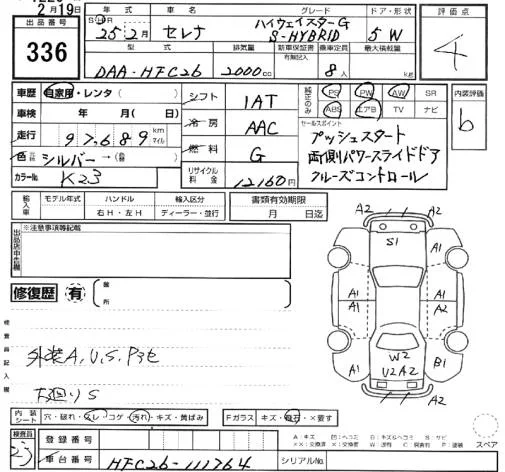 2月19日
出品番号
336
年式
S・H
25年2月
車名
セレナ
グレード
ハイウェイスターG
S-HYBRID
ドア・形状
5 W
評価点
4
型式
DAA-HFC26
排気量
2000cc
新車保証書
有無記入
乗車定員
8人
最大積載量
kg
車歴
自家用・レンタ( )
車検 年 月(日)
走行 97,689 km マイル
色 シルバー→(色替)
カラーNo.
K23
シフト 1AT
冷房 AAC
燃料 G
リサイクル料金 12160円
純正のみ
PS PW AW SR
ABS エアB TV ナビ
セールスポイント
プッシュスタート
両側パワースライドドア
クルーズコントロール
内装評価
b
輸入車
モデル年式 ハンドル 輸入区分
右H・左H ディーラー・並行
書類有効期限
月 日迄
出品店申告欄
※注意事項等記載
修復歴 有
箇所
検査員記入欄
外装A,U,S,Pそ
下廻りS
A2 A2
S1
A1 A1
A1 A2
A1 W2 B1
U2 A2
A2 A2
内装シート 穴・破れ・スレ・コゲ・汚れ・キズ・黄ばみ
Fガラス キズ・飛石・×要す
スペア
検査員
23
登録番号
車台番号 HFC26-111764
シリアルNo.
A:キズ U:ヘコミ B:キズ&ヘコミ S:サビ